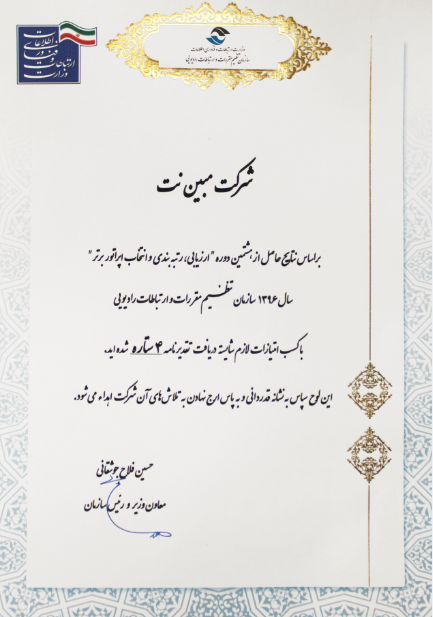 وزارت ارتباطات و فناوری اطلاعات
وزارت ارتباطات و فناوری اطلاعات
سازمان تنظیم مقررات و ارتباطات رادیویی
شرکت مبین نت
براساس نتایج حاصل از هشتمین دوره "ارزیابی، رتبه بندی و انتخاب اپراتور برتر"
سال ۱۳۹۶ سازمان تنظیم مقررات و ارتباطات رادیویی
با کسب امتیازات لازم شایسته دریافت تقدیرنامه ۴ ستاره شده اید.
این لوح سپاس به نشانه قدردانی و به پاس ارج نهادن به تلاش های آن شرکت اهداء می شود.
حسین فلاح جوشقانی
معاون وزیر و رئیس سازمان